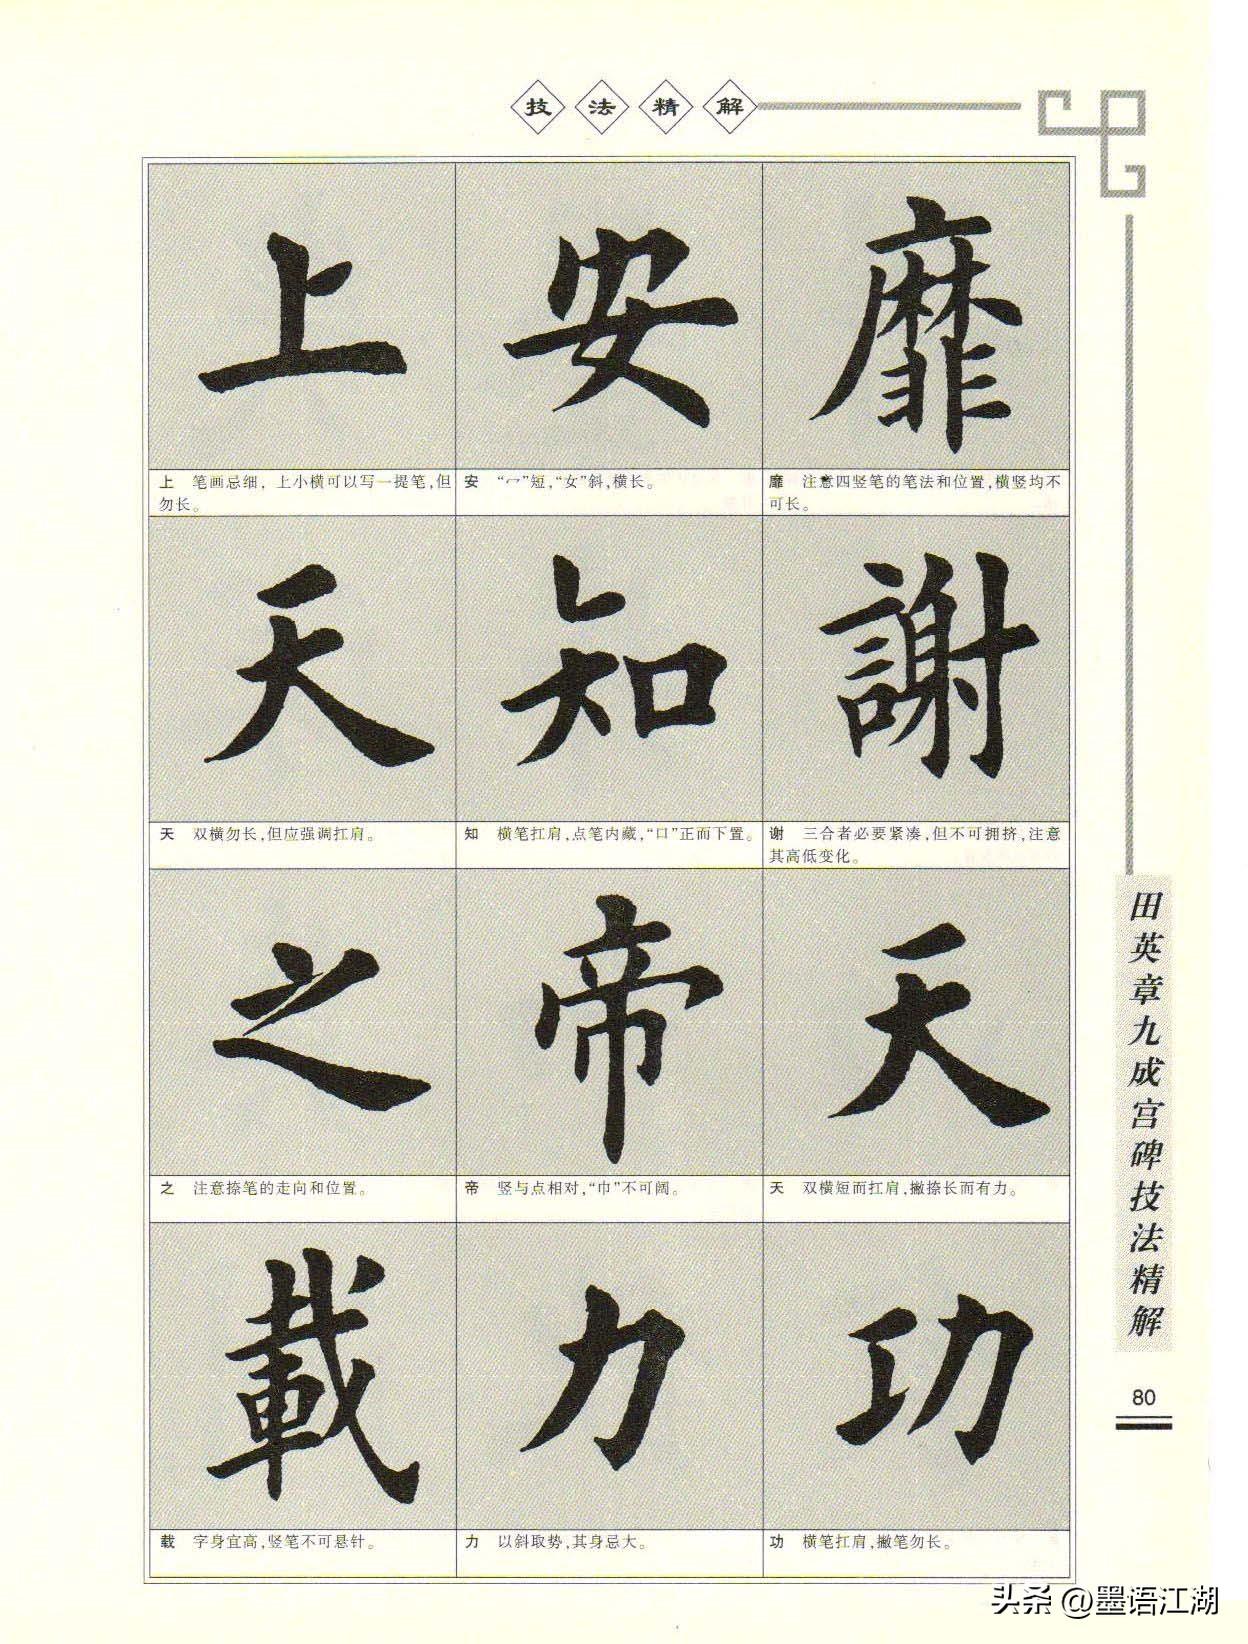 技法精解
上 安 靡
上 笔画忌细，上小横可以写一提笔，但
勿长。
安 “冖”短，“女”斜，横长。
靡 注意四竖笔的笔法和位置，横竖均不
可长。
天 知 謝
天 双横勿长，但应强调扛肩。
知 横笔扛肩，点笔内藏，“口”正而下置。
谢 三合者必要紧凑，但不可拥挤，注意
其高低变化。
之 帝 天
之 注意捺笔的走向和位置。
帝 竖与点相对，“巾”不可阔。
天 双横短而扛肩，撇捺长而有力。
載 力 功
载 字身宜高，竖笔不可悬针。
力 以斜取势，其身忌大。
功 横笔扛肩，撇笔勿长。
田英章九成宫碑技法精解
80
头条 @墨语江湖